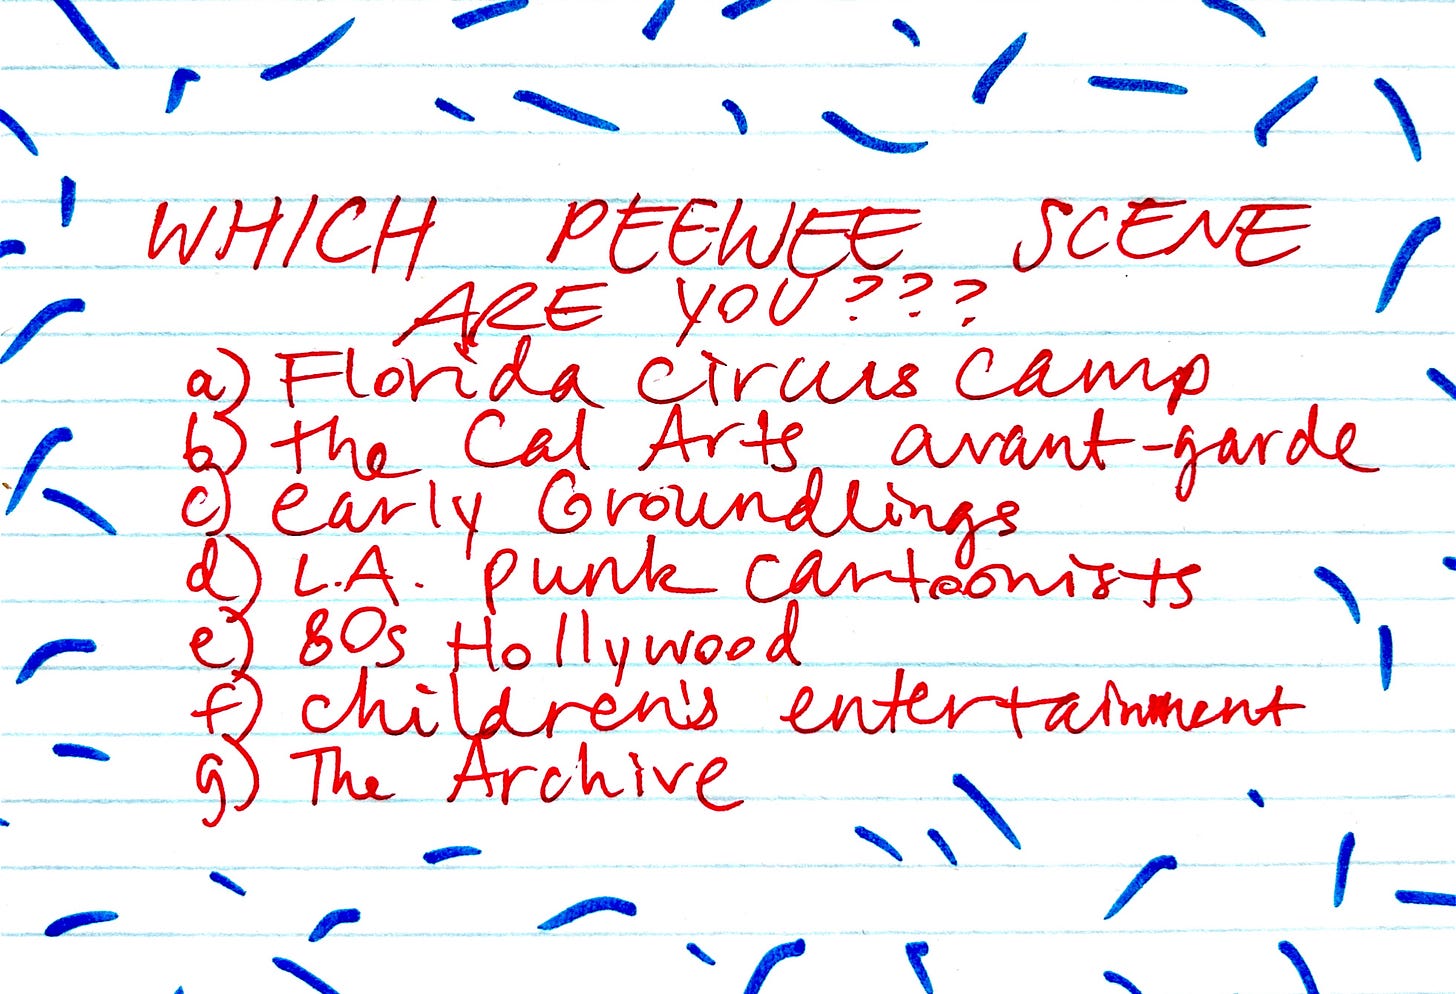 WHICH PEEWEE SCENE
ARE YOU???
a) Florida circus camp
b) the Cal Arts avant-garde
c) early Groundlings
d) L.A. punk cartoonists
e) 80s Hollywood
f) children's entertainment
g) The Archive